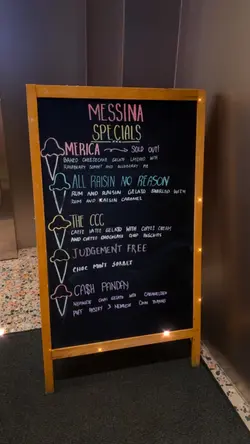 MESSINA
SPECIALS
MERICA → SOLD OUT!
BAKED CHEESECAKE GELATO LAYERED WITH
RASPBERRY SORBET AND BLUEBERRY PIE
ALL RAISIN NO REASON
RUM AND RAISIN GELATO SWIRLED WITH
RUM AND RAISIN CARAMEL
THE CCC
CAFFE LATTE GELATO WITH COFFEE CREAM
AND COFFEE CHOCOLATE CHIP BISCUITS
JUDGEMENT FREE
CHOC MINT SORBET
CA$H PANDAY
CHAI GELATO WITH CARAMELISED
PUFF PASTRY & CHAI